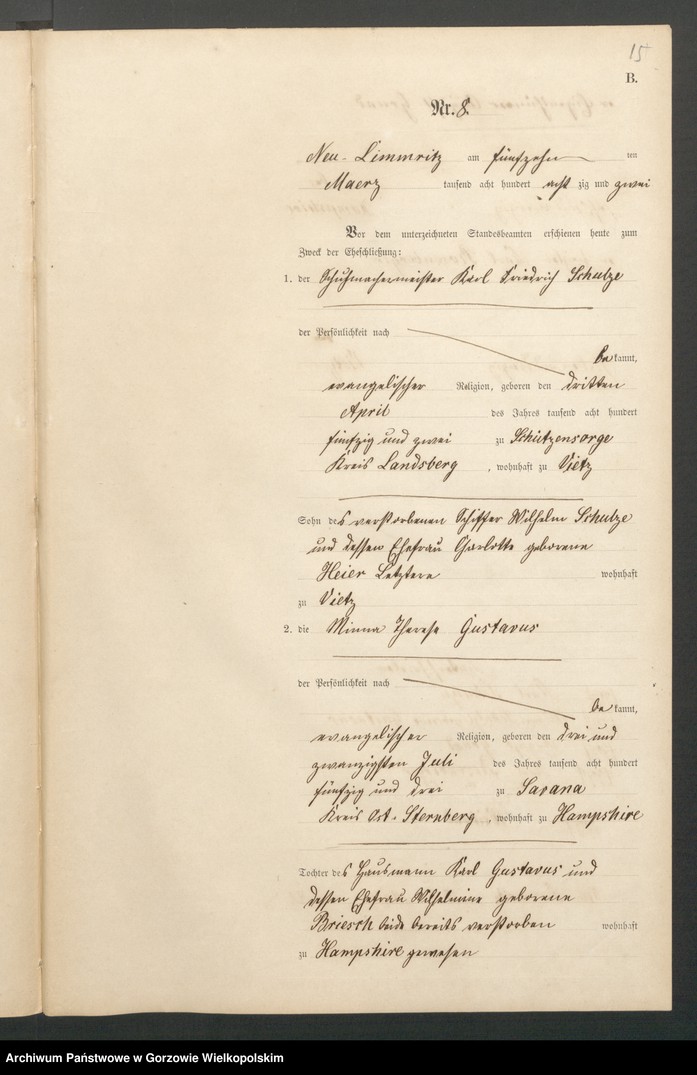 15
B.
Nr. 8.
Neu-Limmritz am fünfzehn ten
Maerz tausend acht hundert acht zig und zwei
Vor dem unterzeichneten Standesbeamten erschienen heute zum
Zweck der Eheschließung:
1. der Schuhmachermeister Karl Friedrich Schulze
der Persönlichkeit nach
be kannt,
evangelischer Religion, geboren den dritten
April des Jahres tausend acht hundert
fünfzig und zwei zu Schützensorge
Kreis Landsberg, wohnhaft zu Vietz
Sohn des verstorbenen Schiffer Wilhelm Schulze
und dessen Ehefrau Charlotte geborene
Heier Letztere wohnhaft
zu Vietz
2. die Minna Therese Gustavus
der Persönlichkeit nach
be kannt,
evangelischer Religion, geboren den drei und
zwanzigsten Juli des Jahres tausend acht hundert
fünfzig und drei zu Savana
Kreis Ost-Sternberg, wohnhaft zu Hampshire
Tochter des Hausmann Karl Gustavus und
dessen Ehefrau Wilhelmine geborene
Briesch beide bereits verstorben wohnhaft
zu Hampshire gewesen
Archiwum Państwowe w Gorzowie Wielkopolskim